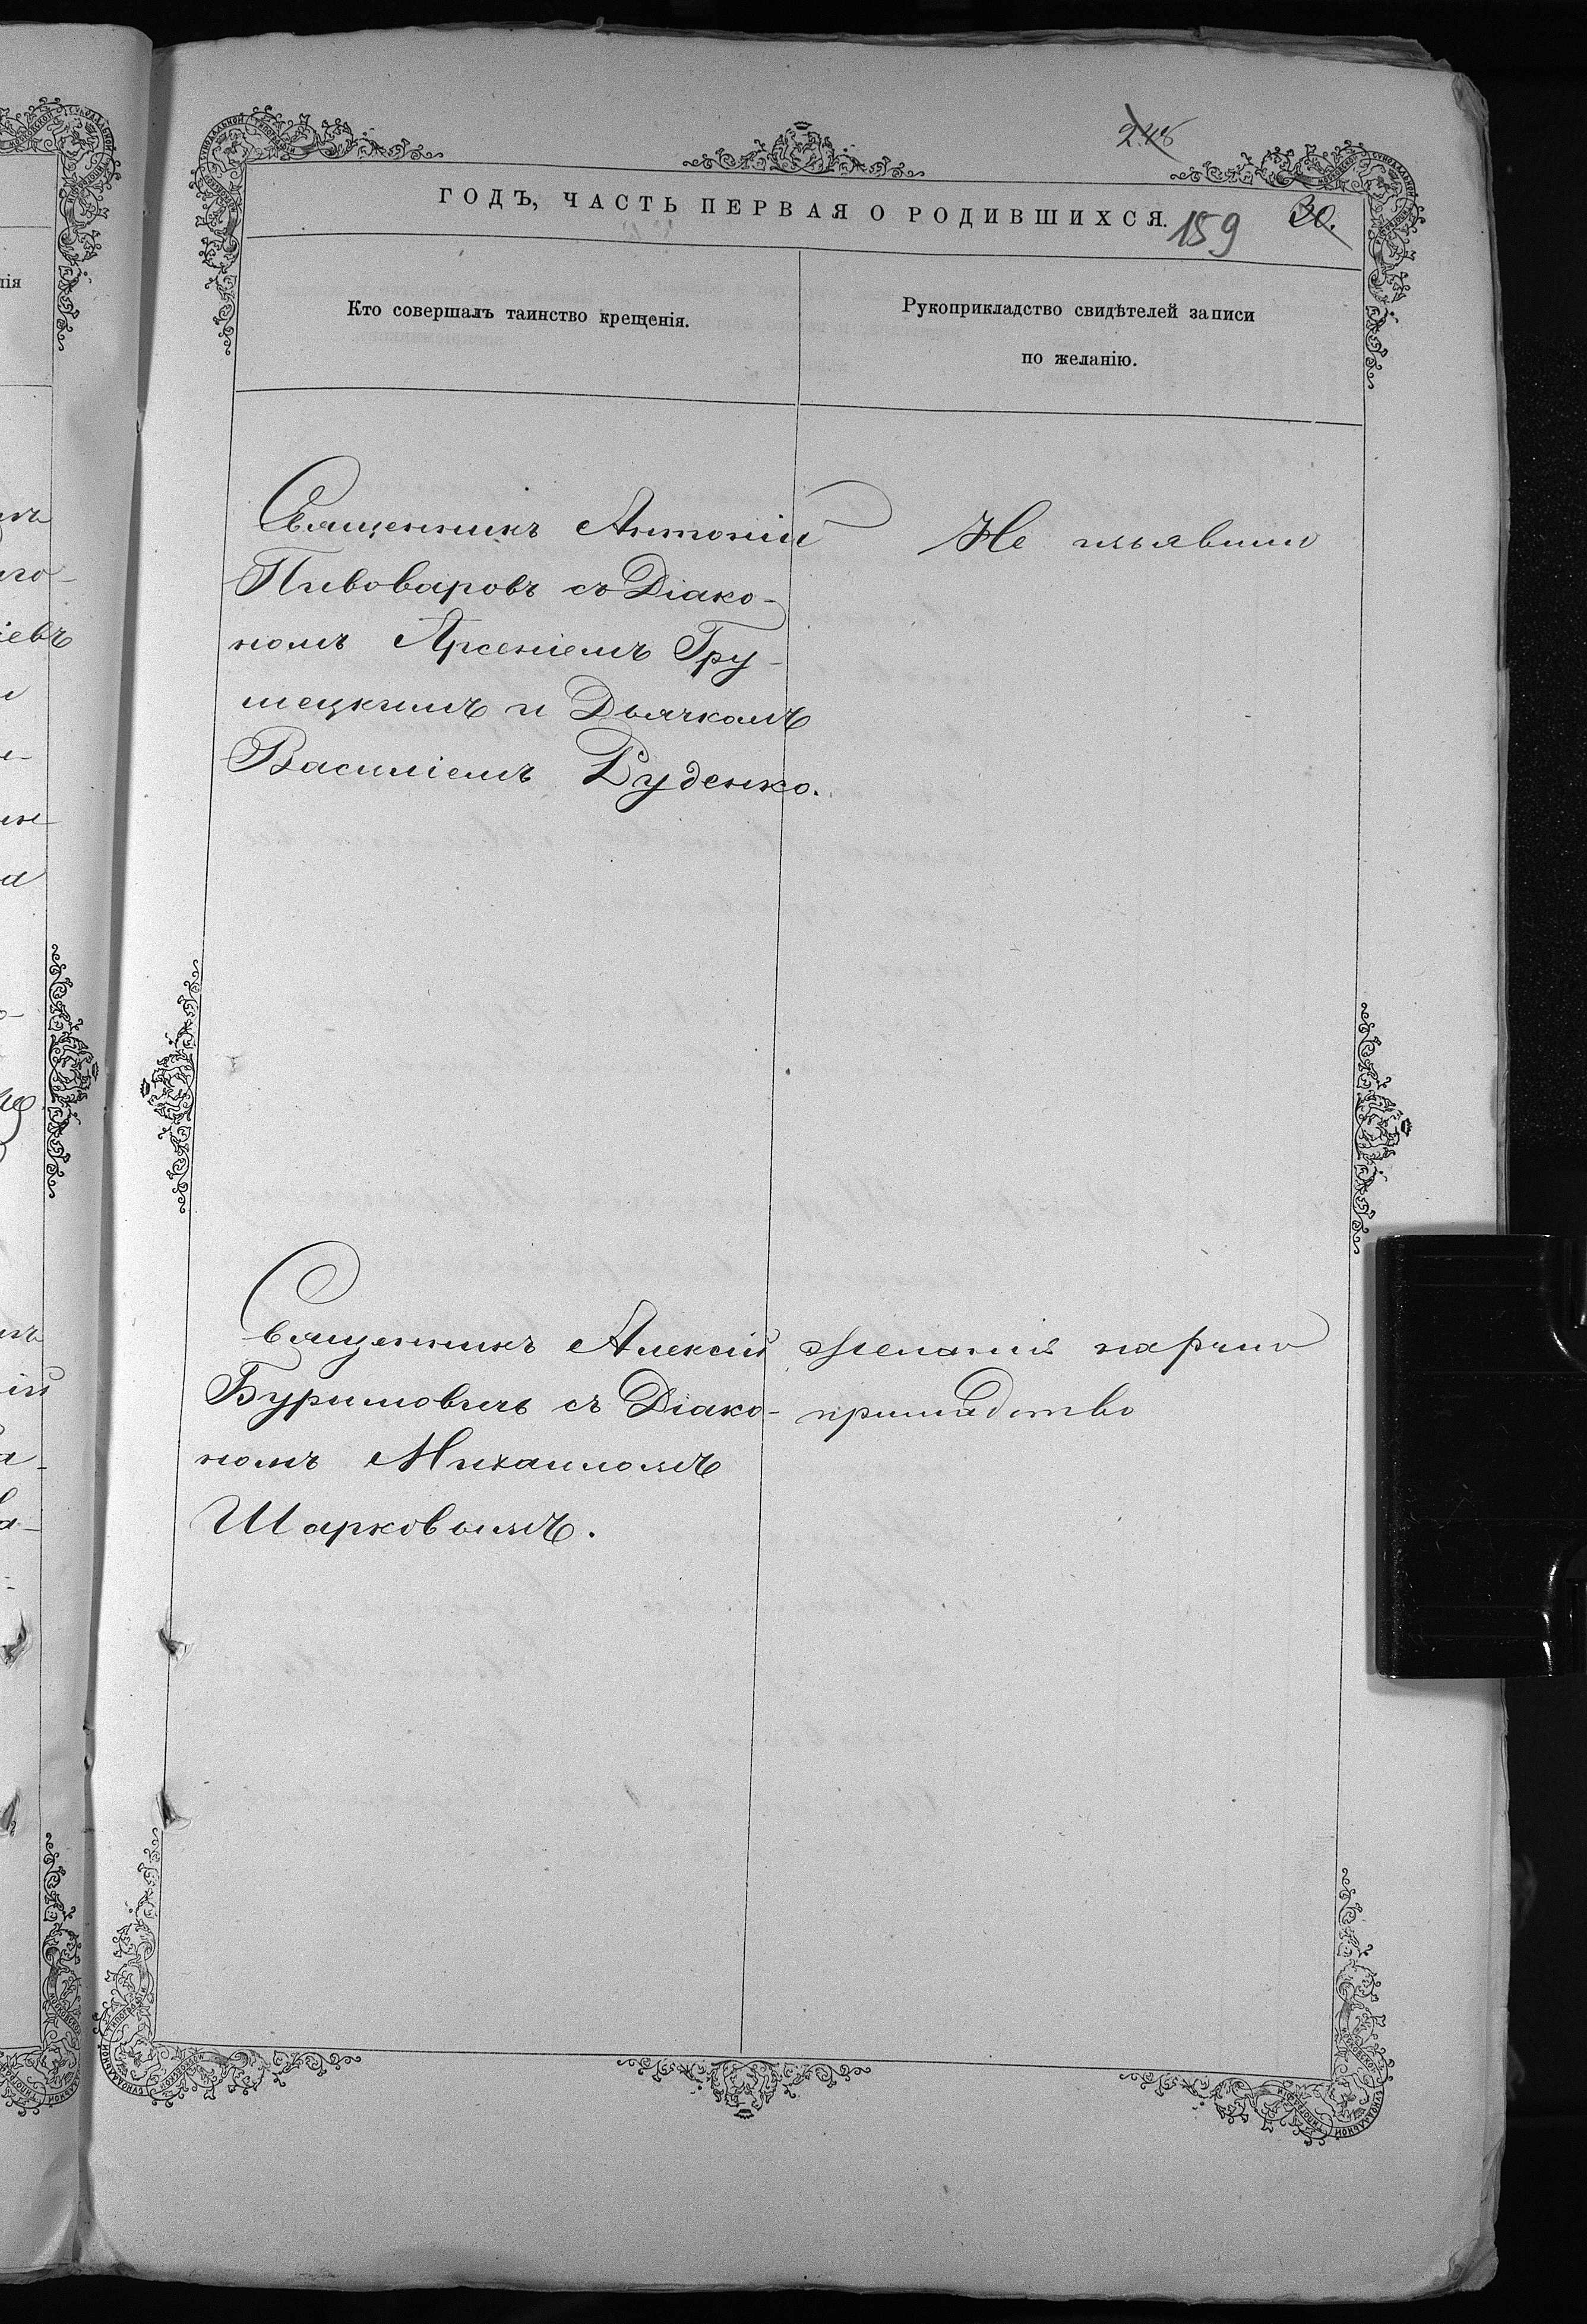 248
ГОДЪ, ЧАСТЬ ПЕРВАЯ О РОДИВШИХСЯ.
159
30.
Кто совершалъ таинство крещенія.
Рукоприкладство свидѣтелей записи
по желанію.
Священникъ Антоній
Пивоваровъ съ Діако-
номъ Арсеніемъ Гру-
шецкимъ и Дьячкомъ
Василіемъ Руденко.
Не изъявили
Священникъ Алексій
Буримовичъ съ Діако-
номъ Михаиломъ
Шарковымъ.
желанія на руко
прикладство